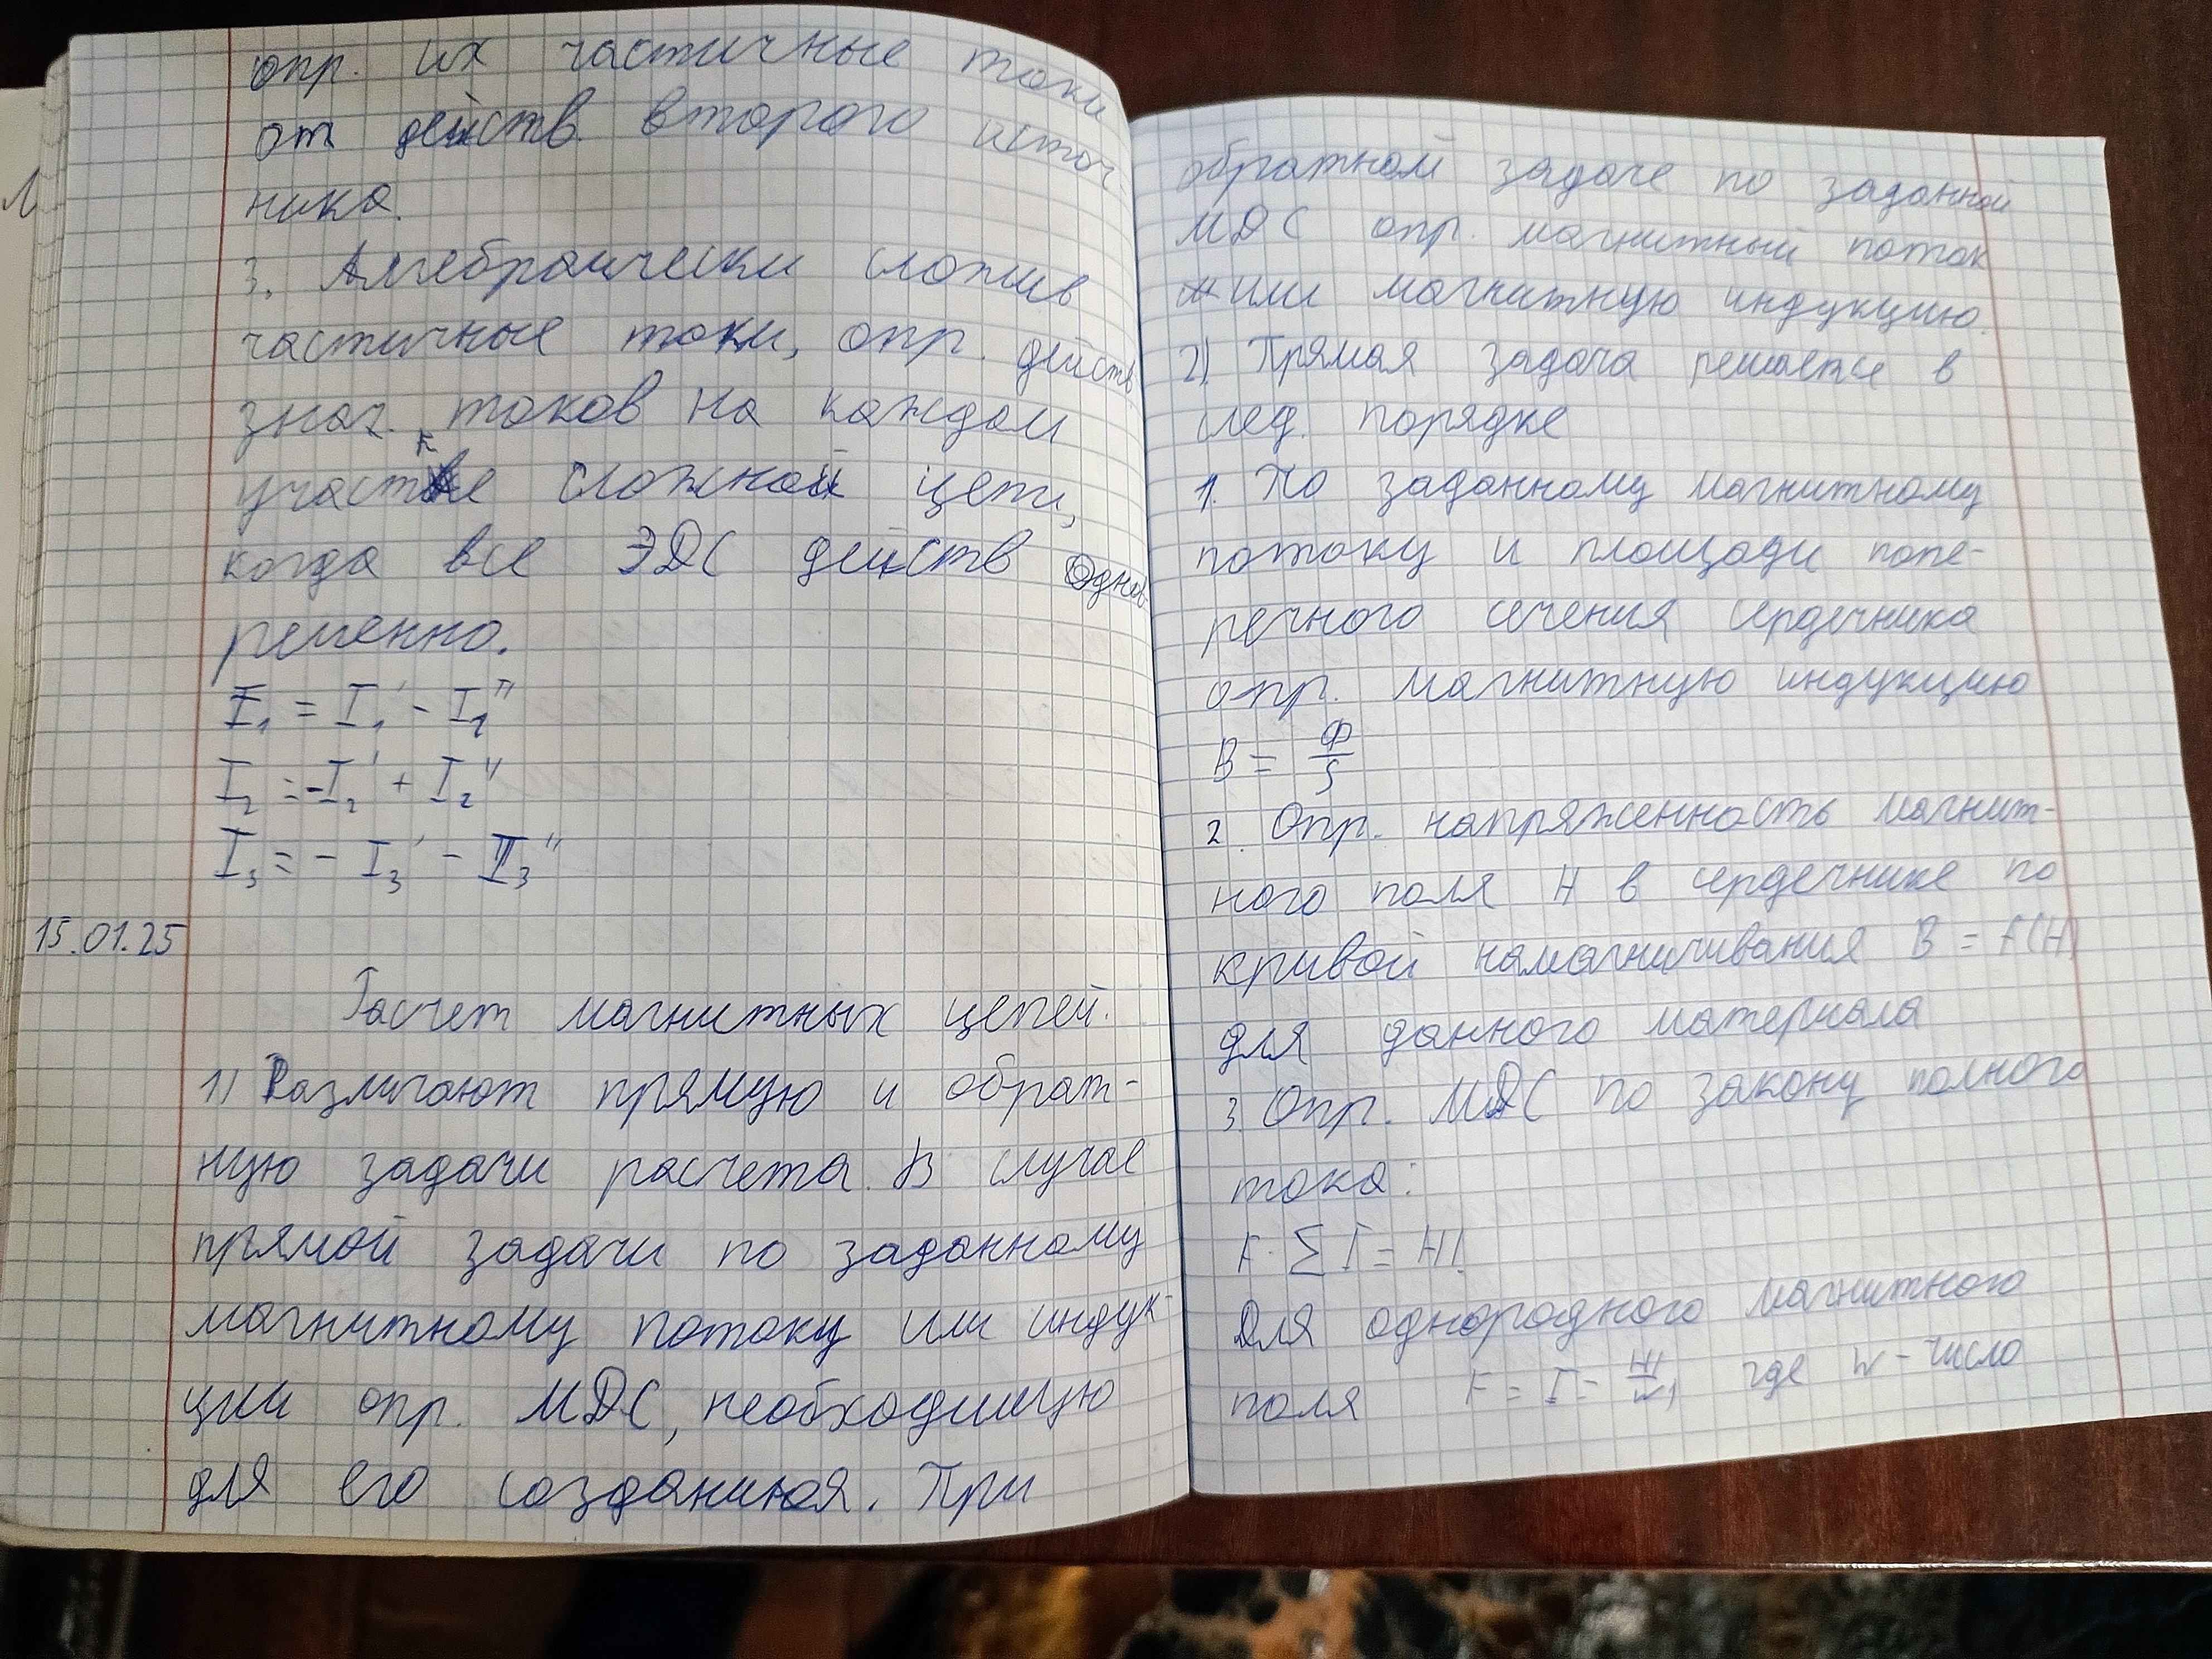 опр. их частичные токи
от действ. второго источ-
ника.
3. Алгебраически сложив
частичные токи, опр. действ
знач. токов на каждом
участке сложной цепи,
когда все ЭДС действ однов-
ременно.
I₁ = I₁' - I₁"
I₂ = -I₂' + I₂"
I₃ = - I₃' - I₃"
15.01.25
Расчет магнитных цепей.
1) Различают прямую и обрат-
ную задачи расчета. В случае
прямой задачи по заданному
магнитному потоку или индук-
ции опр. МДС, необходимую
для его создания. При
обратной задаче по заданной
МДС опр. магнитный поток
или магнитную индукцию.
2). Прямая задача решается в
след. порядке
1. По заданному магнитному
потоку и площади попе-
речного сечения сердечника
опр. магнитную индукцию
B = Ф/S
2. Опр. напряженность магнит-
ного поля H в сердечнике по
кривой намагничивания B = f(H)
для данного материала
3. Опр. МДС по закону полного
тока:
F. ∑ I = Hl
Для однородного магнитного
поля F = I = Hl/w, где w - число